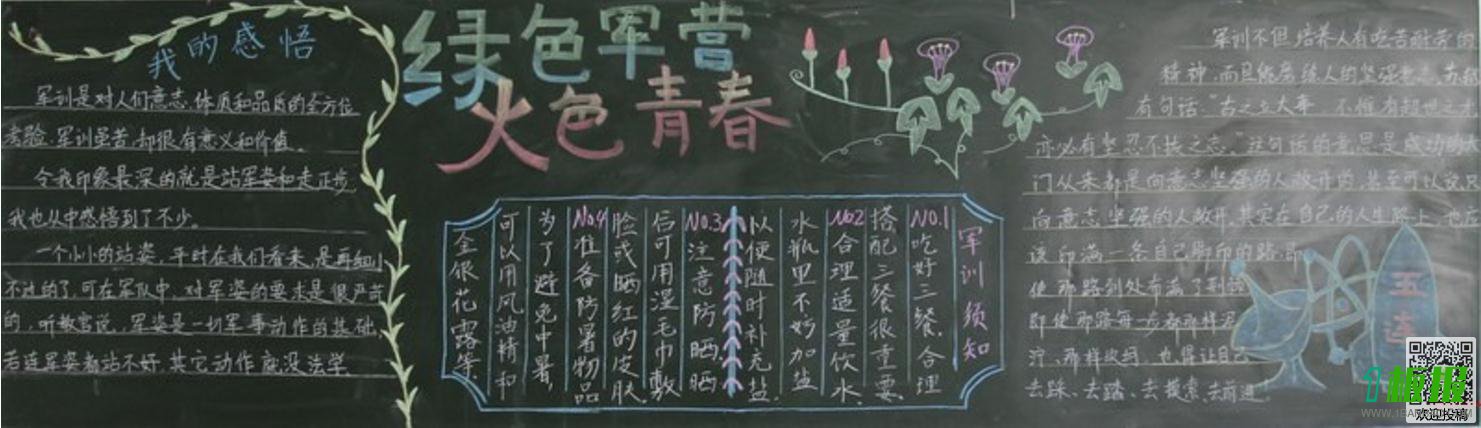 我的感悟
军训是对人们意志、体质和品质的全方位
考验.军训虽苦,却很有意义和价值。
令我印象最深的就是站军姿和走正步
我也从中感悟到了不少。
一个小小的站姿,平时在我们看来,是再细小
不过的了,可在军队中,对军姿的要求是很严苛
的,听教官说,军姿是一切军事动作的基础,
若连军姿都站不好,其它动作就没法学
绿色军营
火色青春
军训须知
No.1吃好三餐,合理
搭配三餐很重要
No2合理适量饮水
水瓶里不妨加盐
以便随时补充盐.
No.3注意防晒,晒
后可用湿毛巾敷
脸或晒红的皮肤
No4准备防暑物品
为了避免中暑,
可以用风油精和
金银花露等.
军训不但培养人有吃苦耐劳的
精神,而且能磨练人的坚强意志,苏轼
有句话:"古之立大事,不惟有超世之才
亦必有坚忍不拔之志."这句话的意思是成功的大
门从来都是向意志坚强的人敞开的,甚至可以说只
向意志坚强的人敞开,其实在自己的人生路上,也应
该印满一条自己脚印的路,即
使那路到处布满了荆棘
即使那路每一步都那样泥
泞、那样坎坷,也得让自己
去踩、去踏、去摸索、去前进!
五连
1板报
WWW.1BANBAO.COM
欢迎投稿